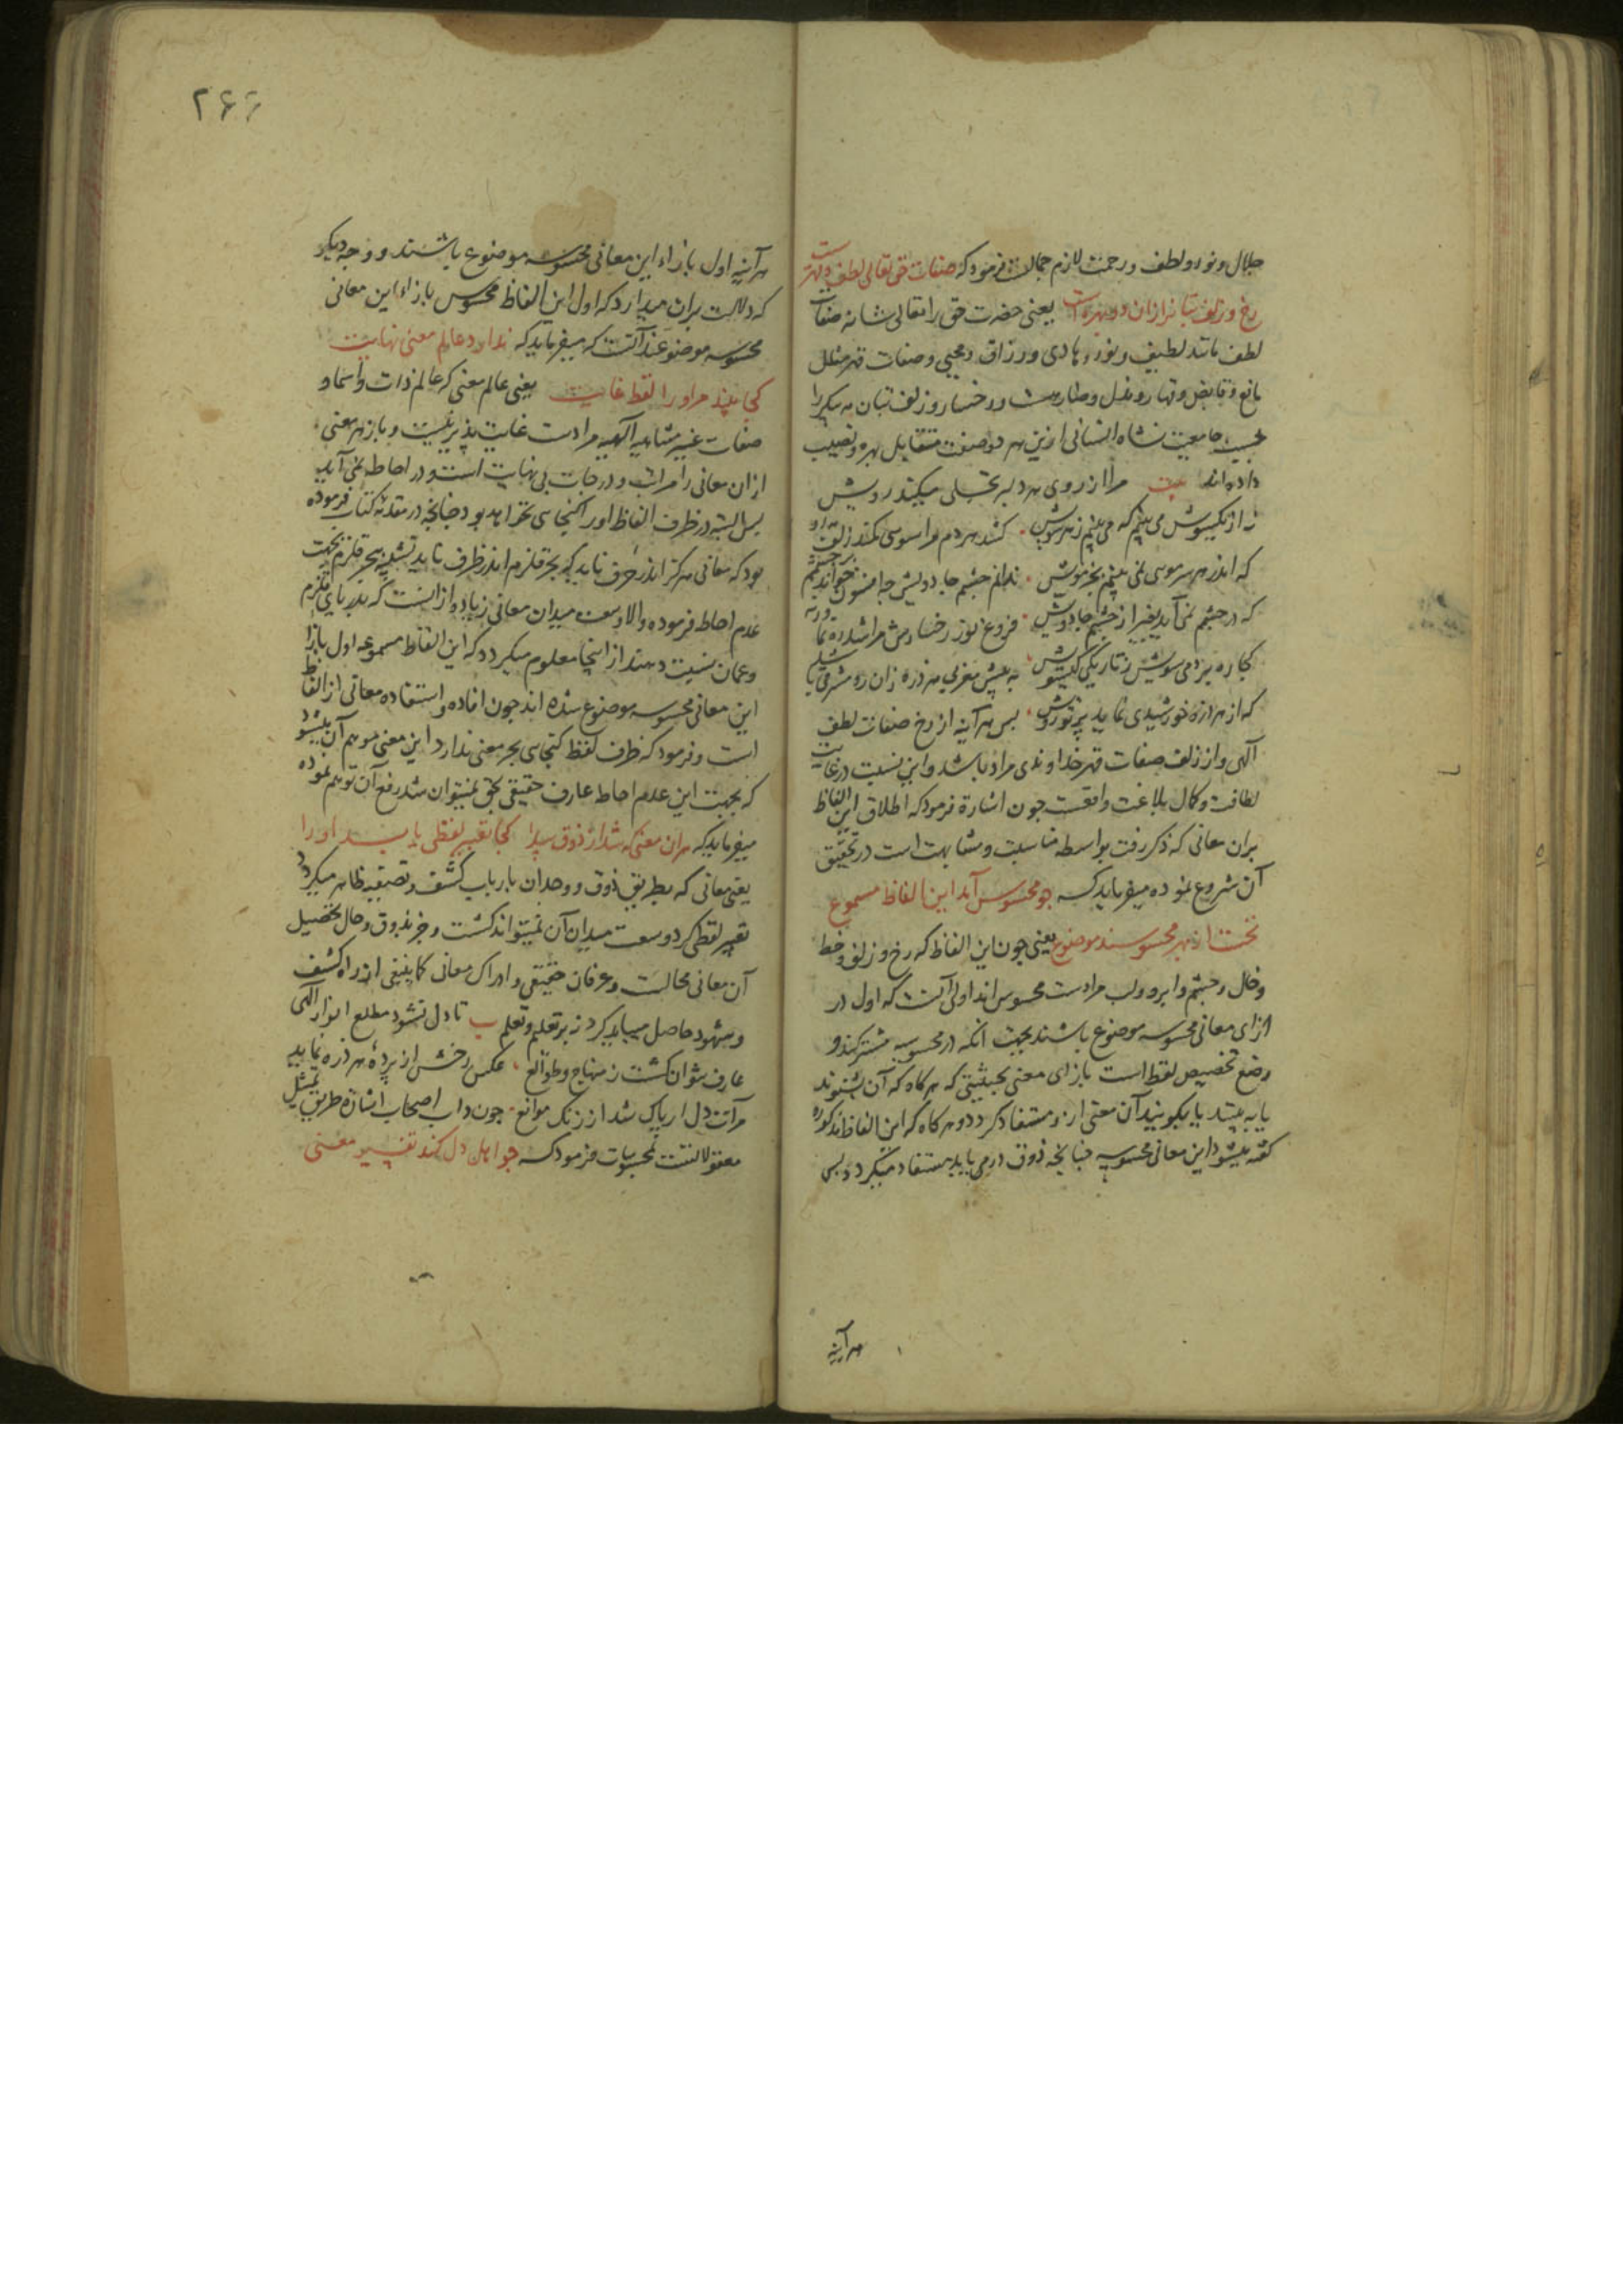 جلال و نور و لطف و رحمت لازم جمالست فرمود که صفات حق تعالی لطف و قهرست
رخ و زلف بتانرا زان دو بهرست یعنی حضرت حق را تعالی شانه صفات
لطف مانند لطیف و نور و هادی و رزاق و محیی و صفات قهر مثل
مانع و قابض و قهار و مذل و ضار هست و رخسار و زلف بتان مه پیکر را
بحسب جامعیت نشاه انسانی ازین هر دو صفت متقابل بهره و نصیب
داده اند بیت مرا از روی هر دلبر تجلی میکند رویش
نه از یکسوش می بینم که می بینم ز هر سویش کشد هر دم مرا سوئی کمند زلف
که اندر هر سر موئی نمی بینم بجز مویش ندانم چشم جادویش چه افسون خواند بر چشمم
که در چشمم نمی آید بغیر از چشم جادویش فروغ نور رخسارش مرا شد ره نما ورنه
کجا ره بردمی سویش ز تاریکی گیسویش به پیش مغربی هر ذره زان رو مشرقی باشد
که از هر ذره خورشیدی نماید پرتو رویش پس هر آینه از رخ صفات لطف
الهی و از زلف صفات قهر خداوندی مراد باشد و این نسبت در غایت
لطافت و کمال بلاغت واقعست چون اشارة فرمود که اطلاق این الفاظ
بران معانی که ذکر رفت بواسطه مناسبت و مشابهت است در تحقیق
آن شروع نموده میفرماید که چو محسوس آمد این الفاظ مسموع
نخست از بهر محسوسند موضوع یعنی چون این الفاظ که رخ و زلف و خط
و خال و چشم و ابرو و لب مرادست محسوس اند اولی آنست که اول در
ازای معانی محسوسه موضوع باشند بجهت انکه در محسوسیه مشترکند و
وضع تخصیص لفظ است بازای معنی بحیثیتی که هر گاه که آن بشنوند
یا به بینند یا بگویند آن معنی ازو مستفاد گردد و هر گاه که این الفاظ مذکوره
گفته میشود این معانی محسوسه چنانچه ذوق درمی یابد مستفاد میگردد پس
هر آینه
۲۶۶
هر آینه اول بازاء این معانی محسوسه موضوع باشند و وجه دیگر
که دلالت بران میدارد که اول این الفاظ محسوس بازاء این معانی
محسوسه موضوعند آنست که میفرماید که ندارد عالم معنی نهایت
کجا بیند مر او را لفظ غایت یعنی عالم معنی که عالم ذات و اسما و
صفات غیر متناهیه الهیه مرادست غایت پذیر نیست و باز هر معنی
ازان معانی را مراتب و درجات بی نهایت است و در احاطه نمی آید
پس البته در ظرف الفاظ او را گنجائی نخواهد بود چنانچه در مقدمه کتاب فرموده
بود که معانی هرگز اندر حرف ناید که بحر قلزم اندر ظرف ناید تشبیه ببحر قلزم بجهت
عدم احاطه فرموده والا وسعت میدان معانی زیاده از انست که بدریای قلزم
و عمان نسبت دهند از اینجا معلوم میگردد که این الفاظ مسموعه اول بازا
این معانی محسوسه موضوع شده اند چون افاده و استفاده معانی از الفاظ
است و فرمود که ظرف لفظ گنجائی بحر معنی ندارد این معنی موهم آن میشود
که بجهت این عدم احاطه عارف حقیقی بحق نمیتوان شد رفع آن توهم نموده
میفرماید که هر آن معنی که شد از ذوق پیدا کجا تعبیر لفظی یابد او را
یعنی معانی که بطریق ذوق و وجدان بارباب کشف و تصفیه ظاهر میگردد
تعبیر لفظی گرد وسعت میدان آن نمیتواند گشت و جز بذوق و حال تحصیل
آن معانی محالست و عرفان حقیقی و ادراک معانی کما ینبغی از راه کشف
و شهود حاصل میباید کرد نه بر تعلیم و تعلم ب تا دل نشود مطلع انوار الهی
عارف نتوان گشت ز منهاج و طوالع عکس رخش از پرده هر ذره نماید
مرآت دل ار پاک شد از زنگ موانع چون داب اصحاب اشارة طریق تمثیل
معقولاتست بمحسوسات فرمود که چو اهل دل کند تفسیر معنی